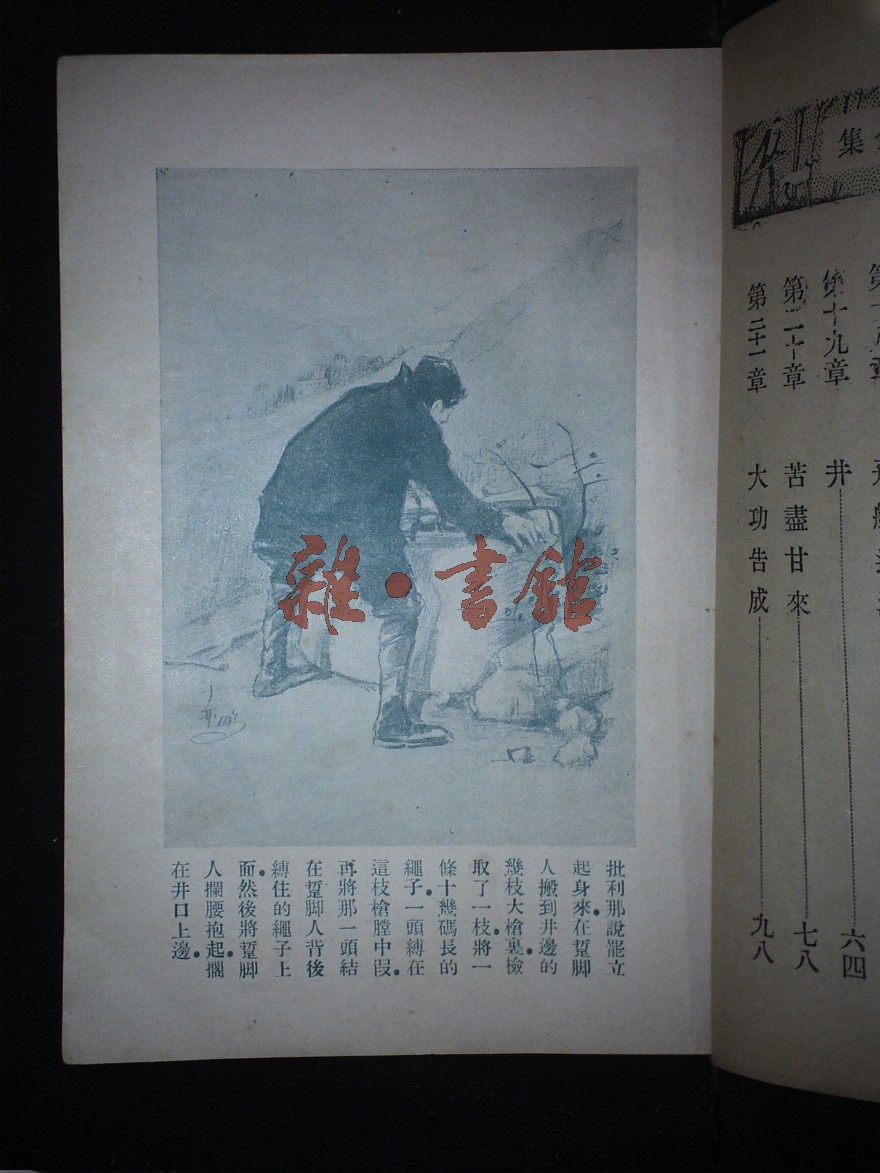 集
第十九章 井 六四
第二十章 苦盡甘來 七八
第二十一章 大功告成 九八
雜·書館
批利那說罷立
起身來.在蹩脚
人搬到井邊的
幾枝大槍裏.檢
取了一枝.將一
條十幾碼長的
繩子.一頭縛在
這枝槍膛中段.
再將那一頭結
在蹩脚人背後
縛住的繩子上
面.然後將蹩脚
人攔腰抱起.擱
在井口上邊.